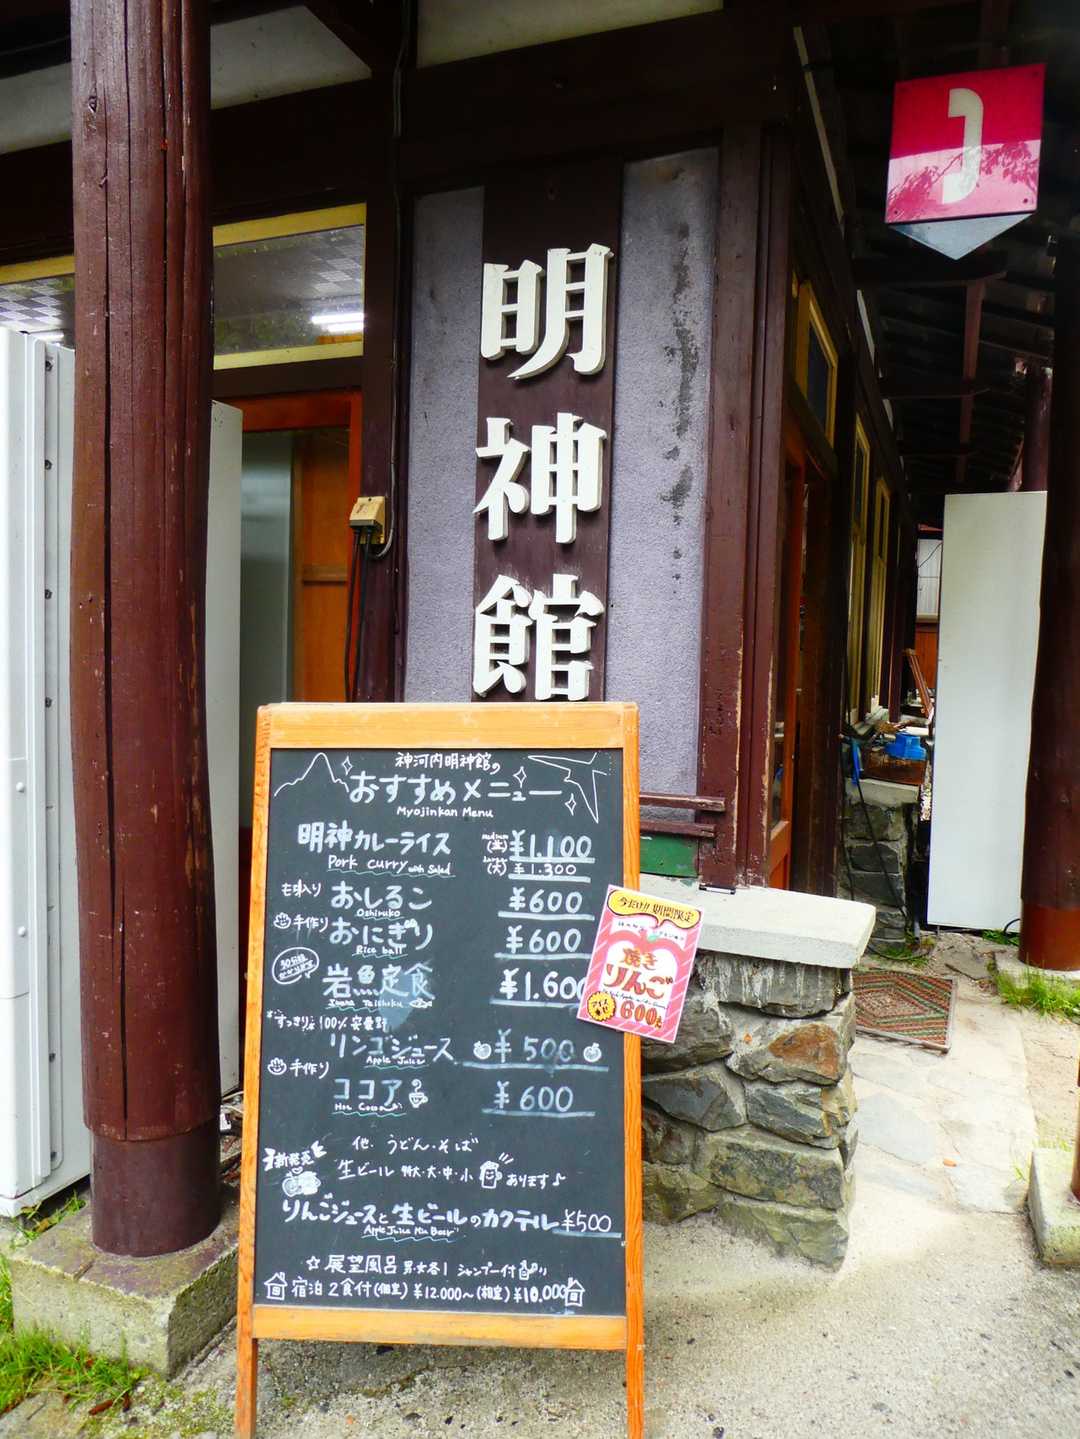 明神館
神河内明神館の
おすすめメニュー
Myojinkan Menu
明神カレーライス medium (並) ¥1,100
Pork curry with Salad (大) ¥1,300
おしるこ ¥600
Oshiruko
手作り おにぎり ¥600
Rice ball
岩魚定食 ¥1,600
Iwana Teishoku
"すっきり" 100% 安曇野
リンゴジュース ¥500
Apple Juice
手作り ココア ¥600
Hot Cocoa
他 うどん・そば
新発売 生ビール 特大・大・中・小 あります♪
りんごジュースと生ビールのカクテル ¥500
Apple Juice Mix Beer
☆展望風呂 男女各1 シャンプー付
宿泊2食付(個室)¥12.000〜(相室)¥10,000
今だけ!! 期間限定
焼き
りんご
600